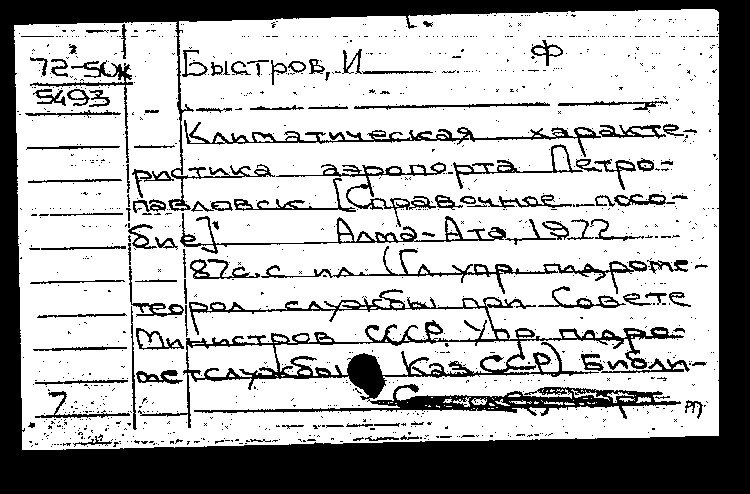 72-50к
5493
Быстров, И Ф
Климатическая характе-
ристика аэропорта Петро-
павловск. [Справочное посо-
бие]. Алма-Ата, 1972.
87с. с ил. (Гл. упр. гидроме-
теорол. службы при Совете
Министров СССР. Упр. гидро-
метслужбы Каз. ССР) Библи-
7